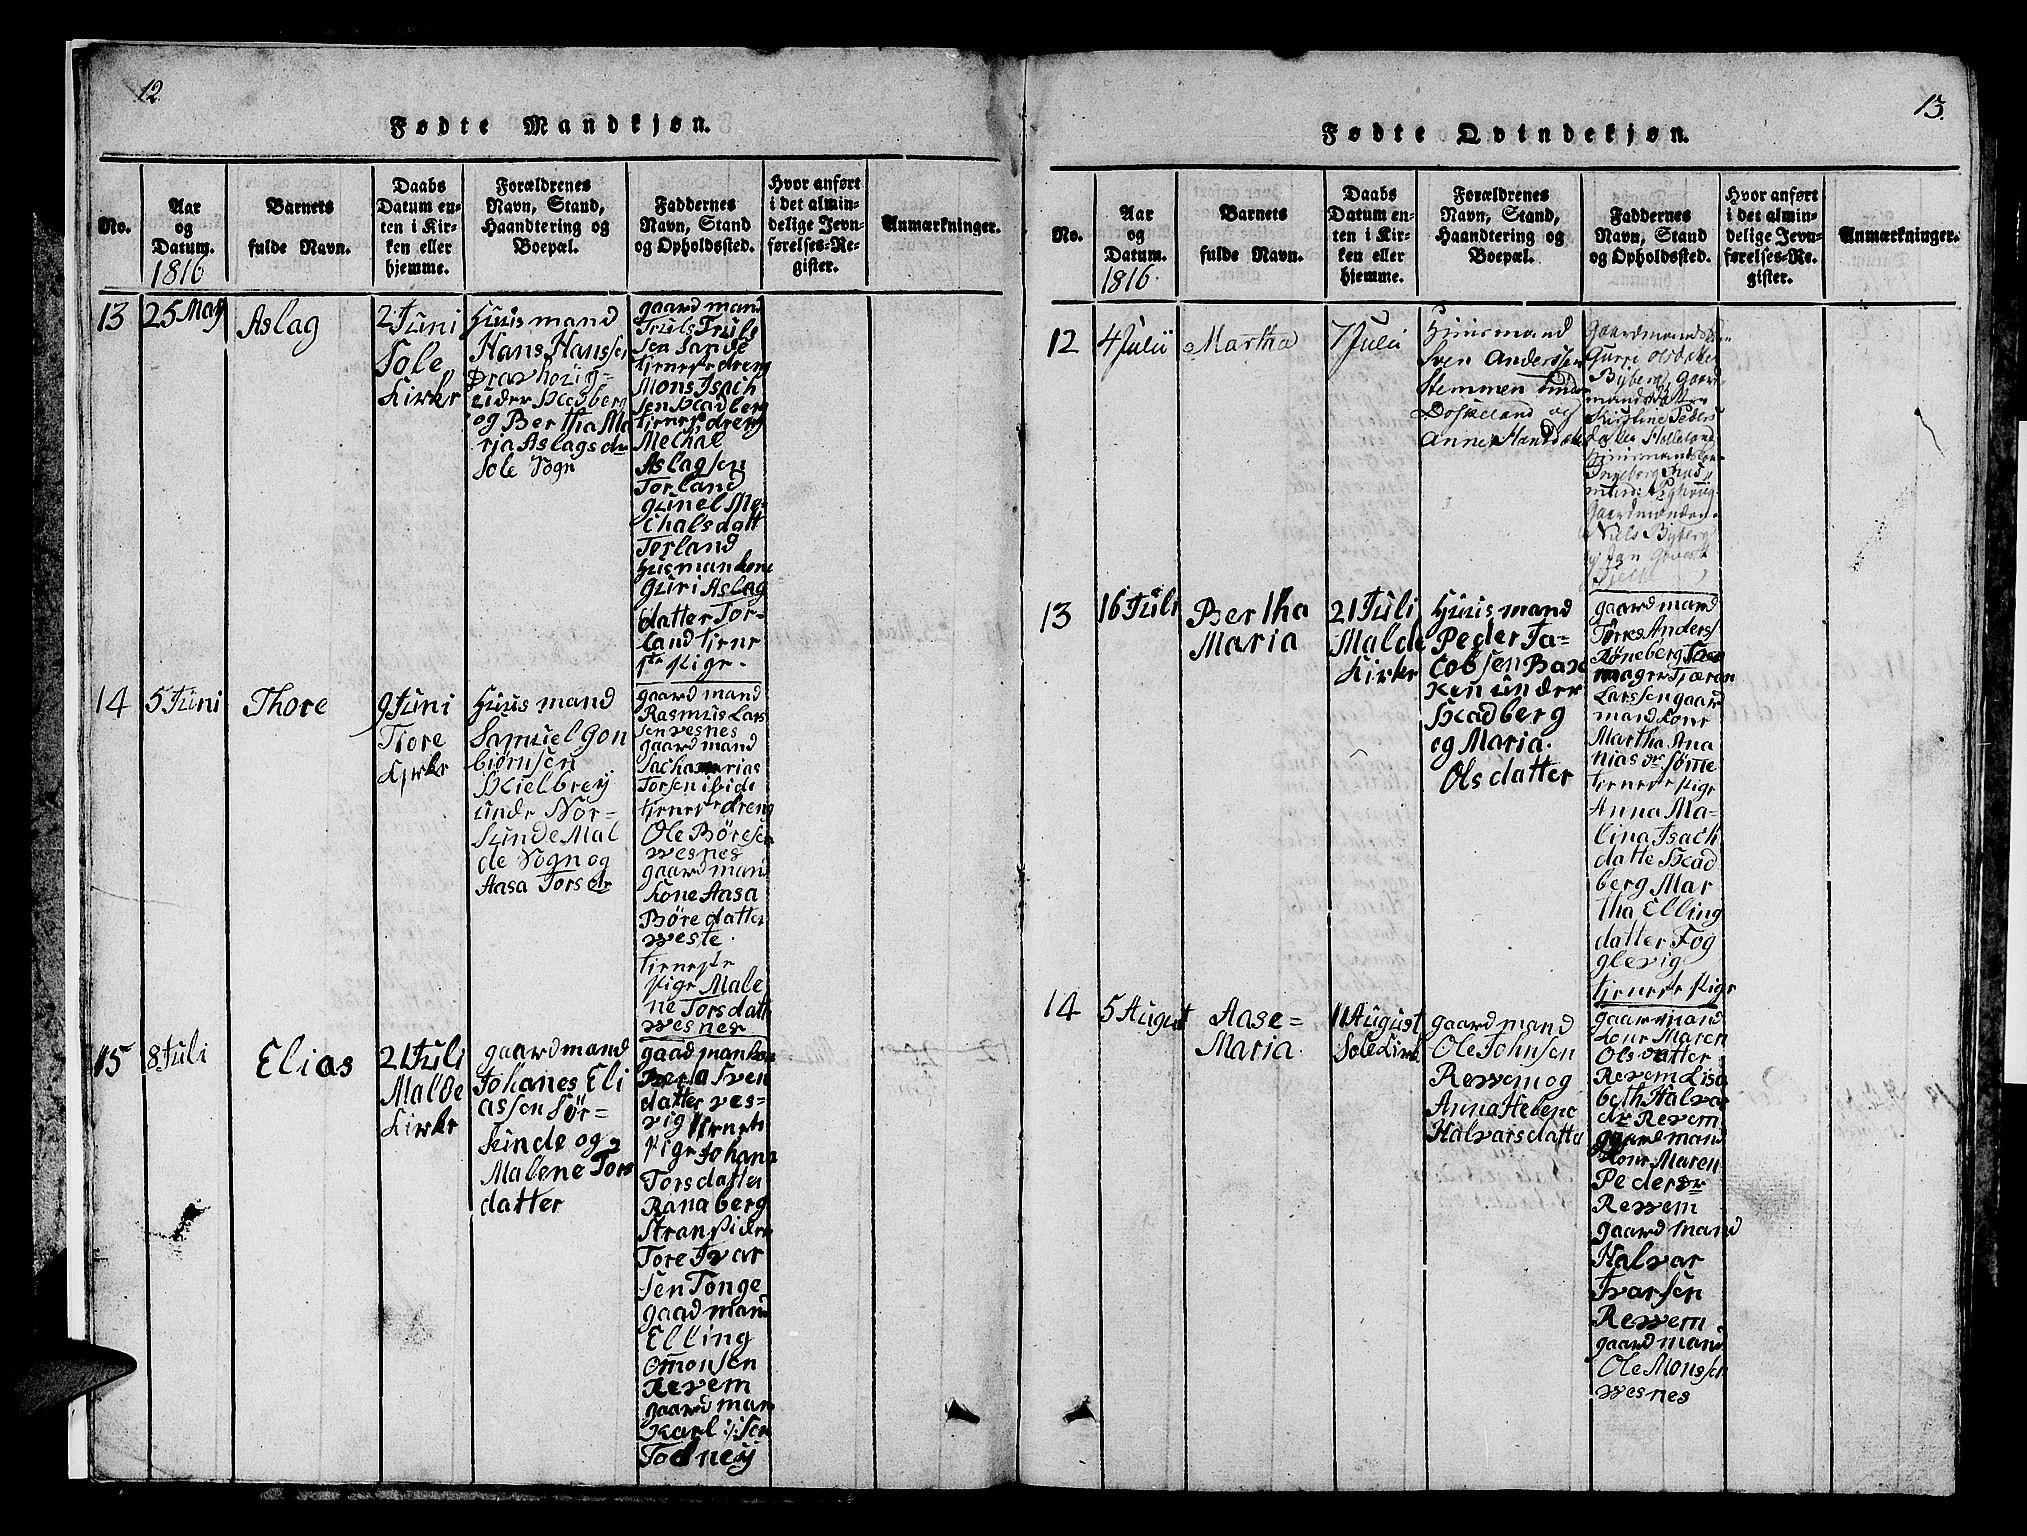 12.
Fødte Mandkjøn.
No.
Aar
og
Datum.
1816
Barnets
fulde Navn.
Daabs
Datum en-
ten i Kir-
ken eller
hjemme.
Forældrenes
Navn, Stand,
Haandtering og
Boepæl.
Faddernes
Navn, Stand
og Opholdssted.
Hvor anført
i det almin-
delige Jevn-
førelses-Re-
gister.
Anmærkninger.
13
25 May
Aslag
2 Juni
Sole
Kirke
Huus mand
Hans Hanssen
under Skadberg
og Bertha Ma
ria Aslags dr
Sole Sogn
gaard mand
Truls Truls
sen Sande
tjeneste dreng
Mons Isach
sen Skadberg
tjeneste dreng
Mechal
Aslagsen
Torland
Gunel Me-
chals datt
Torland
Husmankone
Guri Aslag
datter Tor-
land tjene
ste Pige.
14
5 Juni
Thore
9 Juni
Tiore
Kirke
Huus mand
Samuel Gon
biørnsen
Skielbrey
unde Nor-
Sunde Mal
de Sogn og
Aasa Torsdr
gaard mand
Rasmus Lars
sen vesnes
gaard mand
Sachamarias
Torsen ibide
tjeneste dreng
Ole Børesen
vesnes
gaard man
kone Aasa
Børe datter
veste.
tjeneste
Pige Male
ne Torsdatt
vesnes
15
8 Juli
Elias
21 Juli
Malde
Kirke
gaardmand
Johanes Eli
assen Sør-
Sunde og
Malene Tors
datter
gaad mankon
Berta Sven
datter ves-
vig tienest
Pige Johana
Torsdatter
Ranaberg
Tore Ivar
sen Tonge
gaad man
Elling
Omonsen
Revem
gaard man
Karl
Todney
13.
Fødte Qvindekjøn.
No.
Aar
og
Datum.
1816.
Barnets
fulde Navn.
Daabs
Datum en-
ten i Kir-
ken eller
hjemme.
Forældrenes
Navn, Stand,
Haandtering og
Boepæl.
Faddernes
Navn, Stand
og Opholdssted.
Hvor anført
i det almin-
delige Jevn-
førelses-Re-
gister.
Anmærkninger.
12
4 Julii
Martha
7 Julii
Huusmand
Sven Anderssen
Stemmen under
Doskeland og
Anne Hansdatter
Gurri Olsdatter
Byberg, Gaard
Kirstine Peders
datter Helleland
Ingeborg
Gaardmænden
Niels Byberg
13
16 Juli
Bertha
Maria
21 Juli
Malde
Kirke
Huus mand
Peder Ja-
cobsen Bax
ken under
Skadberg
og Maria.
Ols datter
gaard mand
Tørres Anders
Røneberg
mager Tjæran
Larssen gaard
mand kone
Martha Ana
nias dr Sømme
tieneste Pige
Anna Ma-
lina Isach
datte Skad
berg Mar
tha Elling
datter Fog
glevig
tjeneste Pige
14
5 August
Aase=
Maria.
11 August
Sole Kirke
gaard mand
Ole Johnsen
Revem og
Anna Helene
Halvarsdatter
gaar mand
kone Maren
Ols datter
Revem Lisa
beth Halvar
dr Revem
gaard mand
kone Maren
Peders dr
Revem
gaard mand
Halvar
Ivarsen
Revem
gaard mand
Ole Monssen
vesnes